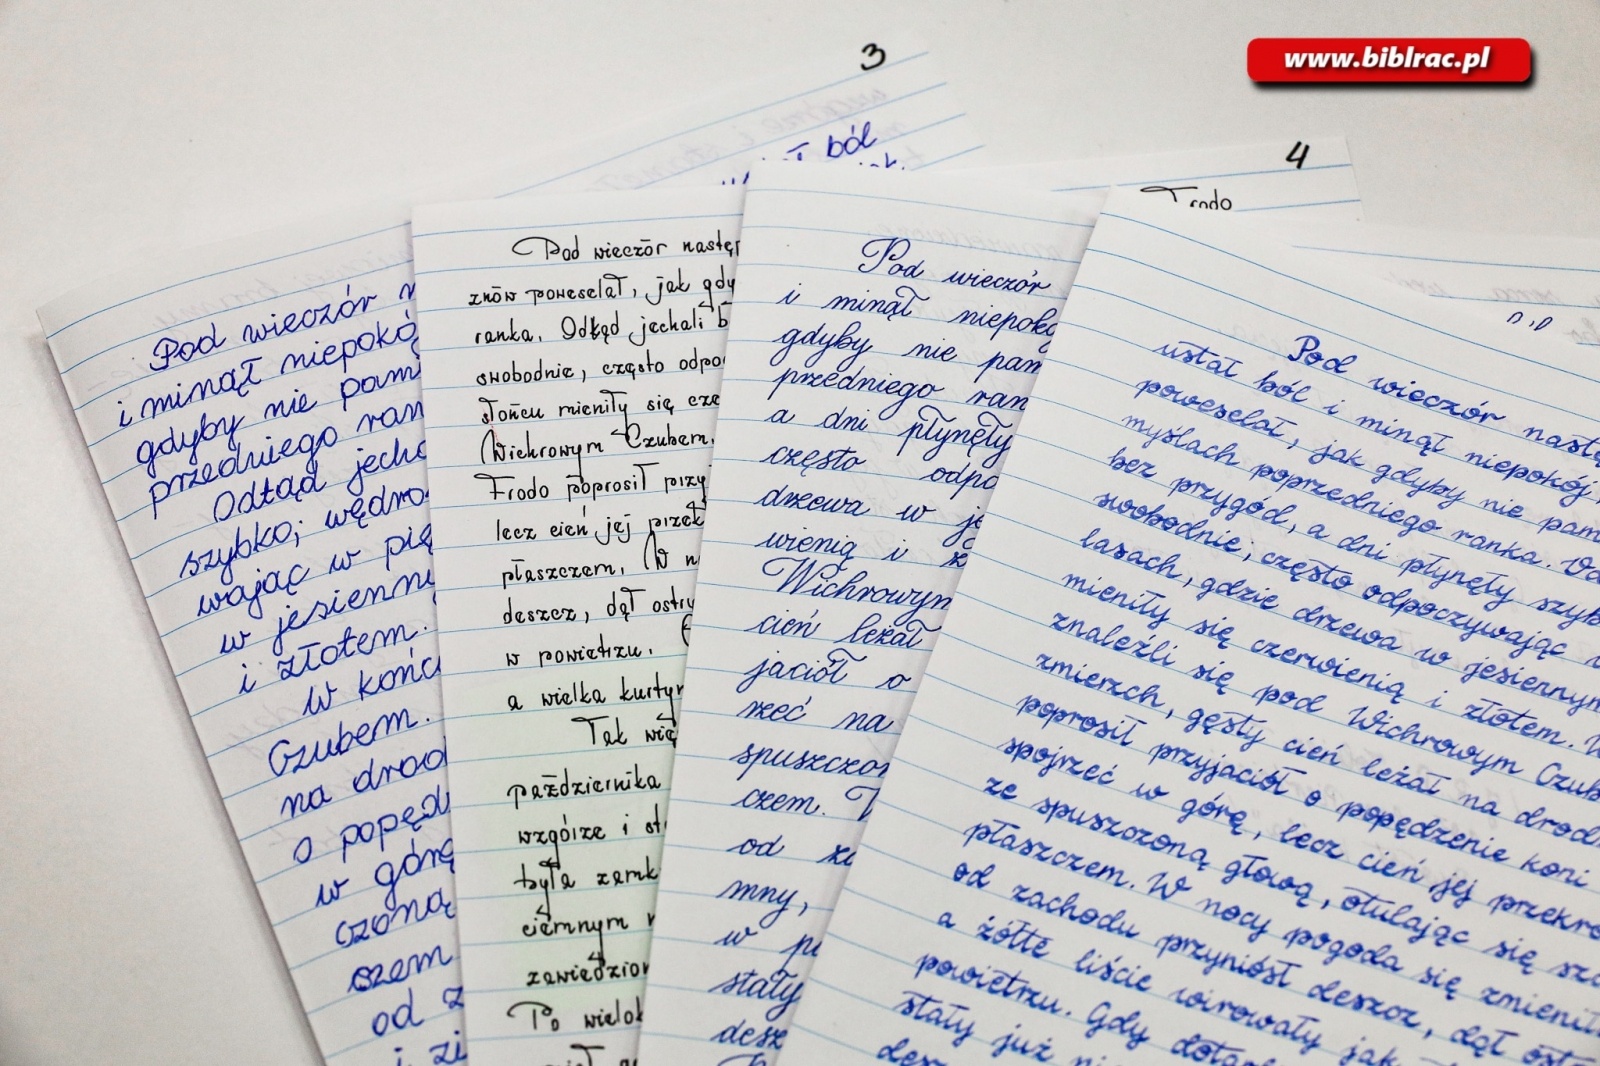 www.biblrac.pl
3
ł ból
4
Frodo
Pod wieczór n
i minął niepokó
gdyby nie pami
przedniego ran
Odtąd jecha
szybko; wędro
wając w pię
w jesienny
i złotem.
W końcu
Czubem.
na drod
o popędz
w górę
czoną
szem
od z
i zi
Pod wieczór następ
znów poweselał, jak gdy
ranka. Odtąd jechali b
swobodnie, często odpo
słońcu mieniły się cze
Wichrowym Czubem.
Frodo poprosił przy
lecz cień jej przek
płaszczem. W n
deszcz, dął ostry
w powietrzu.
a wielka kurtyn
Tak wię
października
wzgórze i st
była zamk
ciemnym
zawiedzion
Po wielok
Pod wieczór
i minął niepokó
gdyby nie pam
przedniego ran
a dni płynęły
często odpo
drzewa w je
wienią i z
Wichrowym
cień leżał
jaciół o
rzeć na
spuszczon
czem. W
od za
mny,
w po
stały
desz
Pod wieczór nastę
ustał ból i minął niepokój,
poweselał, jak gdyby nie pam
myślach poprzedniego ranka. Od
bez przygód, a dni płynęły szyb
swobodnie; często odpoczywając w
lasach, gdzie drzewa w jesiennym
mieniły się czerwienią i złotem. W
znaleźli się pod Wichrowym Czub
zmierzch, gęsty cień leżał na drod
poprosił przyjaciół o popędzenie koni
spojrzeć w górę, lecz cień jej przekr
ze spuszczoną głową, otulając się sz
płaszczem. W nocy pogoda się zmienił
od zachodu przyniósł deszcz, dął ost
a żółte liście wirowały jak
powietrzu. Gdy dotar
stały już ni
desz